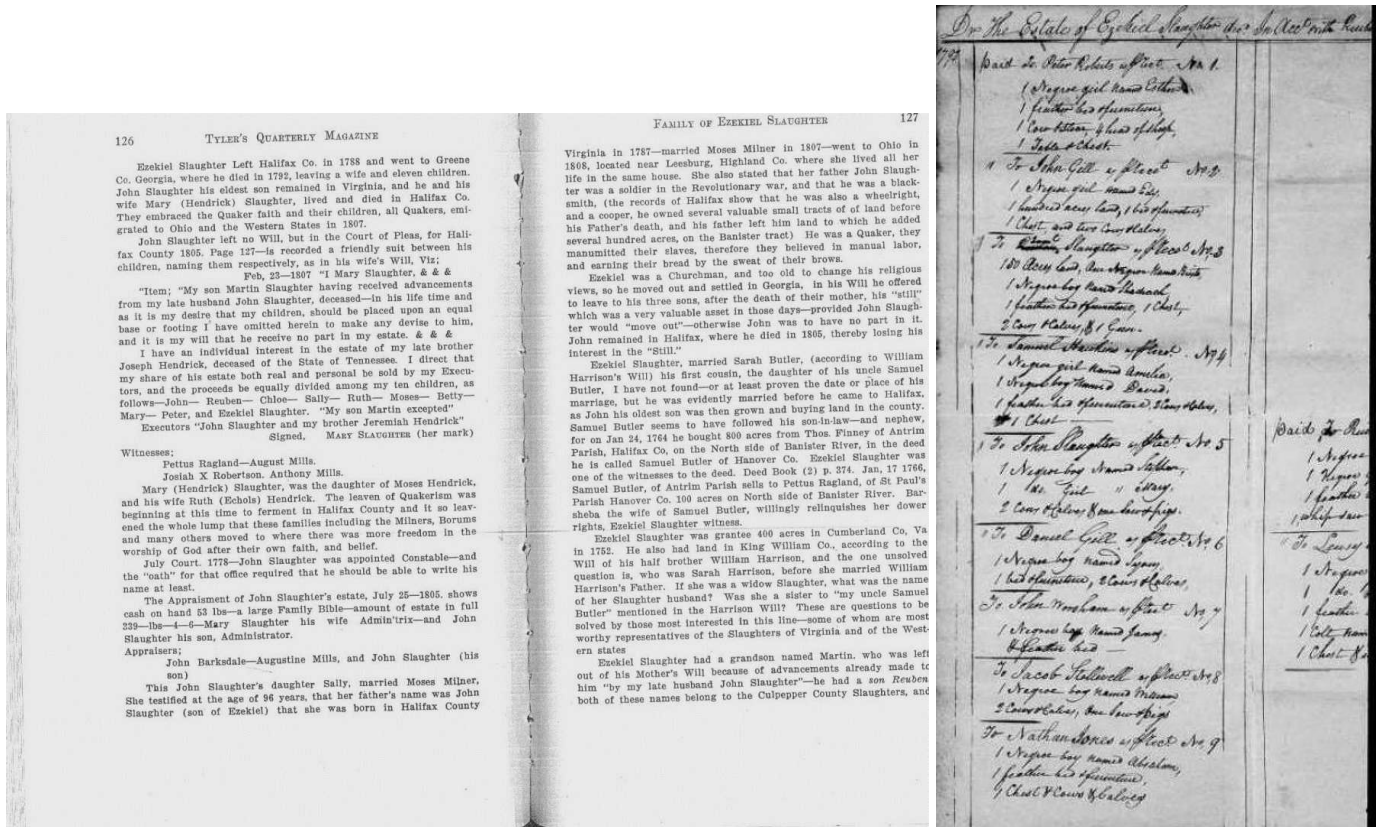 126
TYLER'S QUARTERLY MAGAZINE
Ezekiel Slaughter Left Halifax Co. in 1788 and went to Greene
Co. Georgia, where he died in 1792, leaving a wife and eleven children.
John Slaughter his eldest son remained in Virginia, and he and his
wife Mary (Hendrick) Slaughter, lived and died in Halifax Co.
They embraced the Quaker faith and their children, all Quakers, emi-
grated to Ohio and the Western States in 1807.
John Slaughter left no Will, but in the Court of Pleas, for Hali-
fax County 1805. Page 127—is recorded a friendly suit between his
children, naming them respectively, as in his wife's Will, Viz;
Feb, 23—1807 "I Mary Slaughter, & & &
"Item; "My son Martin Slaughter having received advancements
from my late husband John Slaughter, deceased—in his life time and
as it is my desire that my children, should be placed upon an equal
base or footing I have omitted herein to make any devise to him,
and it is my will that he receive no part in my estate. & & &
I have an individual interest in the estate of my late brother
Joseph Hendrick, deceased of the State of Tennessee. I direct that
my share of his estate both real and personal be sold by my Execu-
tors, and the proceeds be equally divided among my ten children, as
follows—John— Reuben— Chloe— Sally— Ruth— Moses— Betty—
Mary— Peter, and Ezekiel Slaughter. "My son Martin excepted"
Executors "John Slaughter and my brother Jeremiah Hendrick"
Signed, MARY SLAUGHTER (her mark)
Witnesses;
Pettus Ragland—August Mills.
Josiah X Robertson. Anthony Mills.
Mary (Hendrick) Slaughter, was the daughter of Moses Hendrick,
and his wife Ruth (Echols) Hendrick. The leaven of Quakerism was
beginning at this time to ferment in Halifax County and it so leav-
ened the whole lump that these families including the Milners, Borums
and many others moved to where there was more freedom in the
worship of God after their own faith, and belief.
July Court. 1778—John Slaughter was appointed Constable—and
the "oath" for that office required that he should be able to write his
name at least.
The Appraisment of John Slaughter's estate, July 25—1805. shows
cash on hand 53 lbs—a large Family Bible—amount of estate in full
239—lbs—4—6—Mary Slaughter his wife Admin'trix—and John
Slaughter his son, Administrator.
Appraisers;
John Barksdale—Augustine Mills, and John Slaughter (his
son)
This John Slaughter's daughter Sally, married Moses Milner,
She testified at the age of 96 years, that her father's name was John
Slaughter (son of Ezekiel) that she was born in Halifax County
FAMILY OF EZEKIEL SLAUGHTER
127
Virginia in 1787—married Moses Milner in 1807—went to Ohio in
1808, located near Leesburg, Highland Co. where she lived all her
life in the same house. She also stated that her father John Slaugh-
ter was a soldier in the Revolutionary war, and that he was a black-
smith, (the records of Halifax show that he was also a wheelright,
and a cooper, he owned several valuable small tracts of of land before
his Father's death, and his father left him land to which he added
several hundred acres, on the Banister tract) He was a Quaker, they
manumitted their slaves, therefore they believed in manual labor,
and earning their bread by the sweat of their brows.
Ezekiel was a Churchman, and too old to change his religious
views, so he moved out and settled in Georgia, in his Will he offered
to leave to his three sons, after the death of their mother, his "still"
which was a very valuable asset in those days—provided John Slaugh-
ter would "move out"—otherwise John was to have no part in it.
John remained in Halifax, where he died in 1805, thereby losing his
interest in the "Still."
Ezekiel Slaughter, married Sarah Butler, (according to William
Harrison's Will) his first cousin, the daughter of his uncle Samuel
Butler, I have not found—or at least proven the date or place of his
marriage, but he was evidently married before he came to Halifax,
as John his oldest son was then grown and buying land in the county.
Samuel Butler seems to have followed his son-in-law—and nephew,
for on Jan 24, 1764 he bought 800 acres from Thos. Finney of Antrim
Parish, Halifax Co, on the North side of Banister River, in the deed
he is called Samuel Butler of Hanover Co. Ezekiel Slaughter was
one of the witnesses to the deed. Deed Book (2) p. 374. Jan, 17 1766,
Samuel Butler, of Antrim Parish sells to Pettus Ragland, of St Paul's
Parish Hanover Co. 100 acres on North side of Banister River. Bar-
sheba the wife of Samuel Butler, willingly relinquishes her dower
rights, Ezekiel Slaughter witness.
Ezekiel Slaughter was grantee 400 acres in Cumberland Co, Va
in 1752. He also had land in King William Co., according to the
Will of his half brother William Harrison, and the one unsolved
question is, who was Sarah Harrison, before she married William
Harrison's Father. If she was a widow Slaughter, what was the name
of her Slaughter husband? Was she a sister to "my uncle Samuel
Butler" mentioned in the Harrison Will? These are questions to be
solved by those most interested in this line—some of whom are most
worthy representatives of the Slaughters of Virginia and of the West-
ern states
Ezekiel Slaughter had a grandson named Martin, who was left
out of his Mother's Will because of advancements already made to
him "by my late husband John Slaughter"—he had a son Reuben
both of these names belong to the Culpepper County Slaughters, and
Dr The Estate of Ezekiel Slaughter decd In Acct with
1792
paid to Peter Roberts No 1.
1 Negroe girl named Esther
1 feather bed & furniture,
1 Cow 4 head of sheep,
1 Table & Chest
To John Gill No 2
1 Negroe girl named
1 hundred acres land, 1 bed & furniture,
1 Chest, and two Cows & Calves
To Slaughter No 3
150 Acres land, One Negroe Named
1 Negroe boy named Shadrach
1 feather bed & furniture, 1 Chest,
2 Cows & Calves, & 1 Gun.
To Samuel Hawkins No 4
1 Negroe girl named Amelia,
1 Negroe boy Named David
1 feather bed & furniture, 2 Cows & Calves,
1 Chest
To John Slaughter No 5
1 Negroe boy Named Stephen,
1 do. Girl " Mary.
2 Cows & Calves & one Sow & pigs.
To Daniel Gill No 6
1 Negroe boy named
1 bed & furniture, 2 Cows & Calves,
To John Worsham No 7
1 Negroe boy Named James.
1 feather bed
To Jacob No 8
1 Negroe boy named William
2 Cows & Calves, One Sow & pigs
To Nathan Jones No. 9
1 Negroe boy named Absalom,
1 feather bed & furniture,
1 Chest & Cows & Calves
paid to
1 Negroe
1 Negroe
1 feather
1 whip saw
To
1 Negroe
1 do.
1 feather
1 Colt
1 Chest